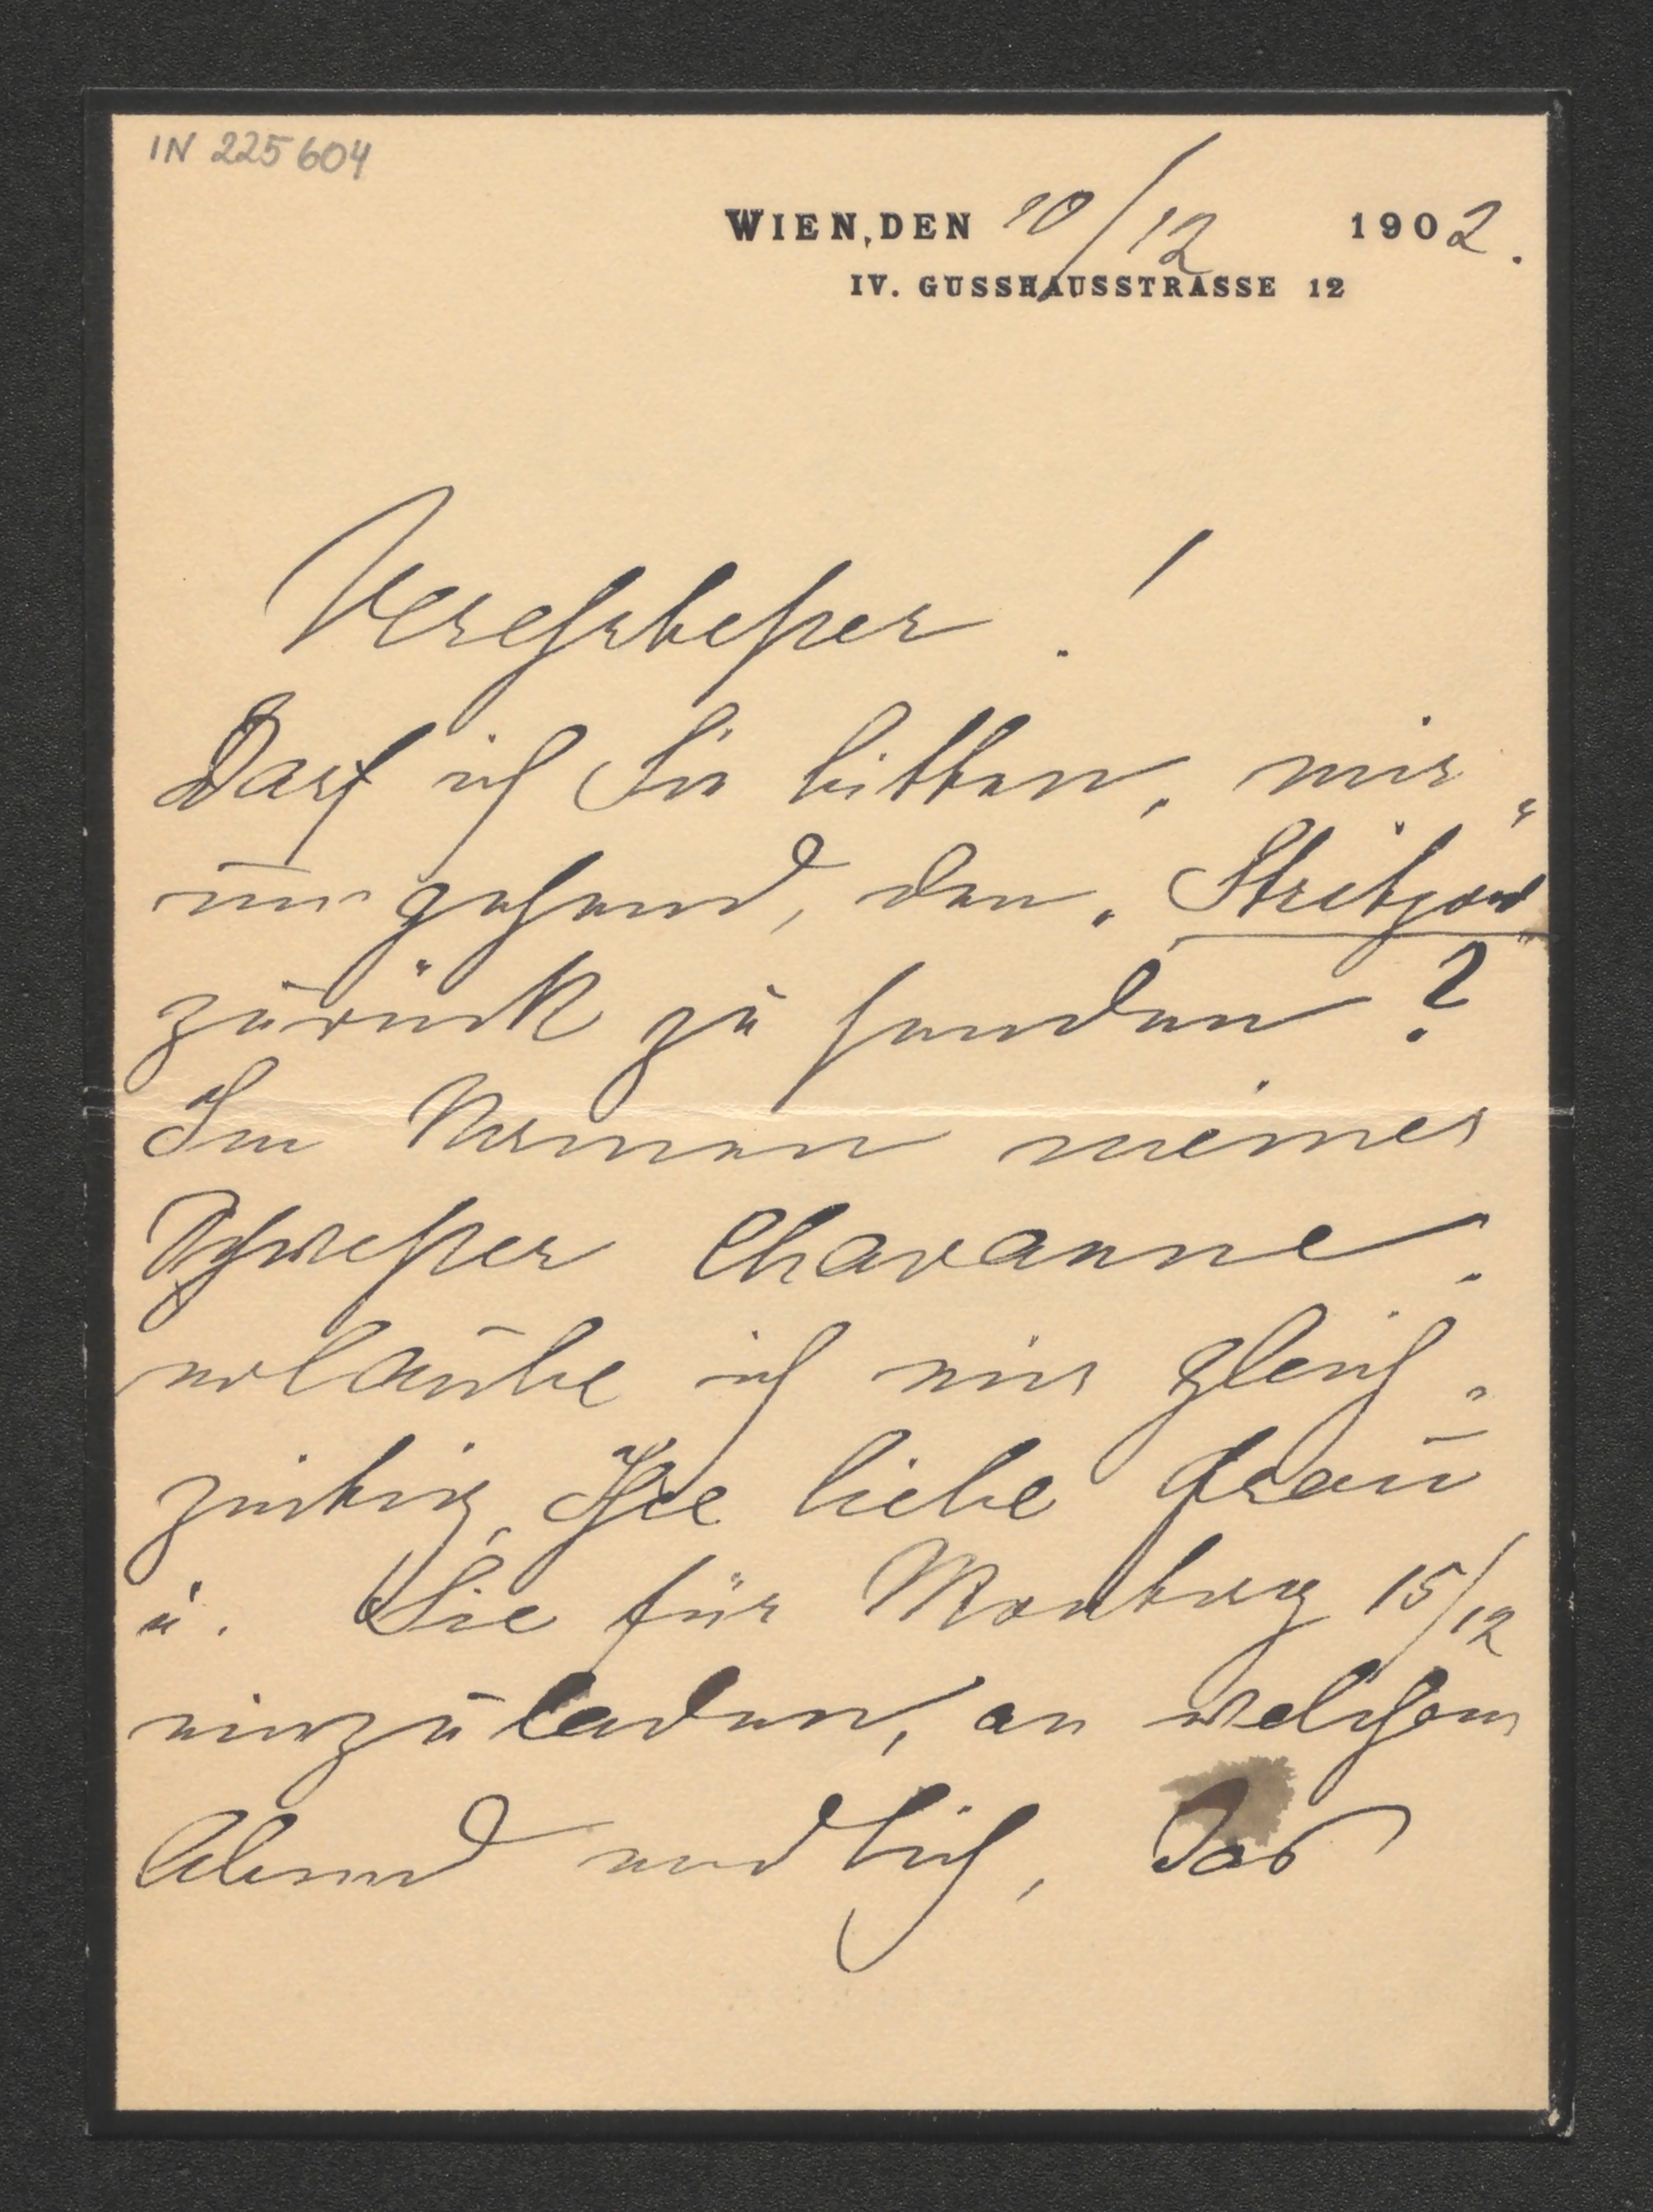 IN 225604
WIEN, DEN 10/12 1902.
IV. GUSSHAUSSTRASSE 12
Verehrtester!
Darf ich Sie bitten, mir „
umgehend, den „
zurück zu senden?
Im Namen meiner
Schwester Chavanne.
erlaube ich mir gleich„
zeitig, Ihre liebe Frau
u. Sie für Montag 15/12
einzuladen, an welchem
Abend endlich, das